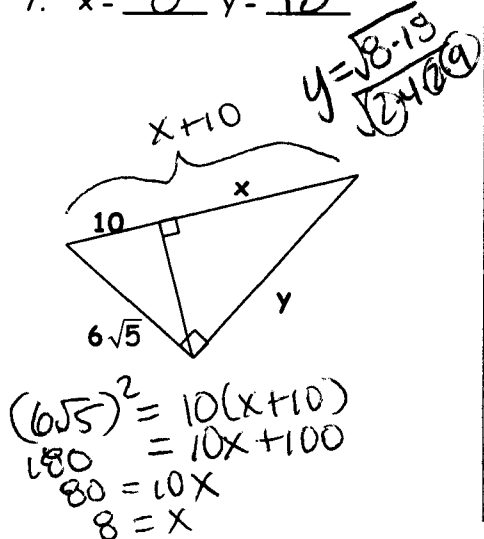 7. x= 8 y= 12
y=√8·18
√2·4·2·9
x+10
10
x
6√5
y
(6√5)² = 10(x+10)
180 = 10x+100
80 = 10x
8 = x